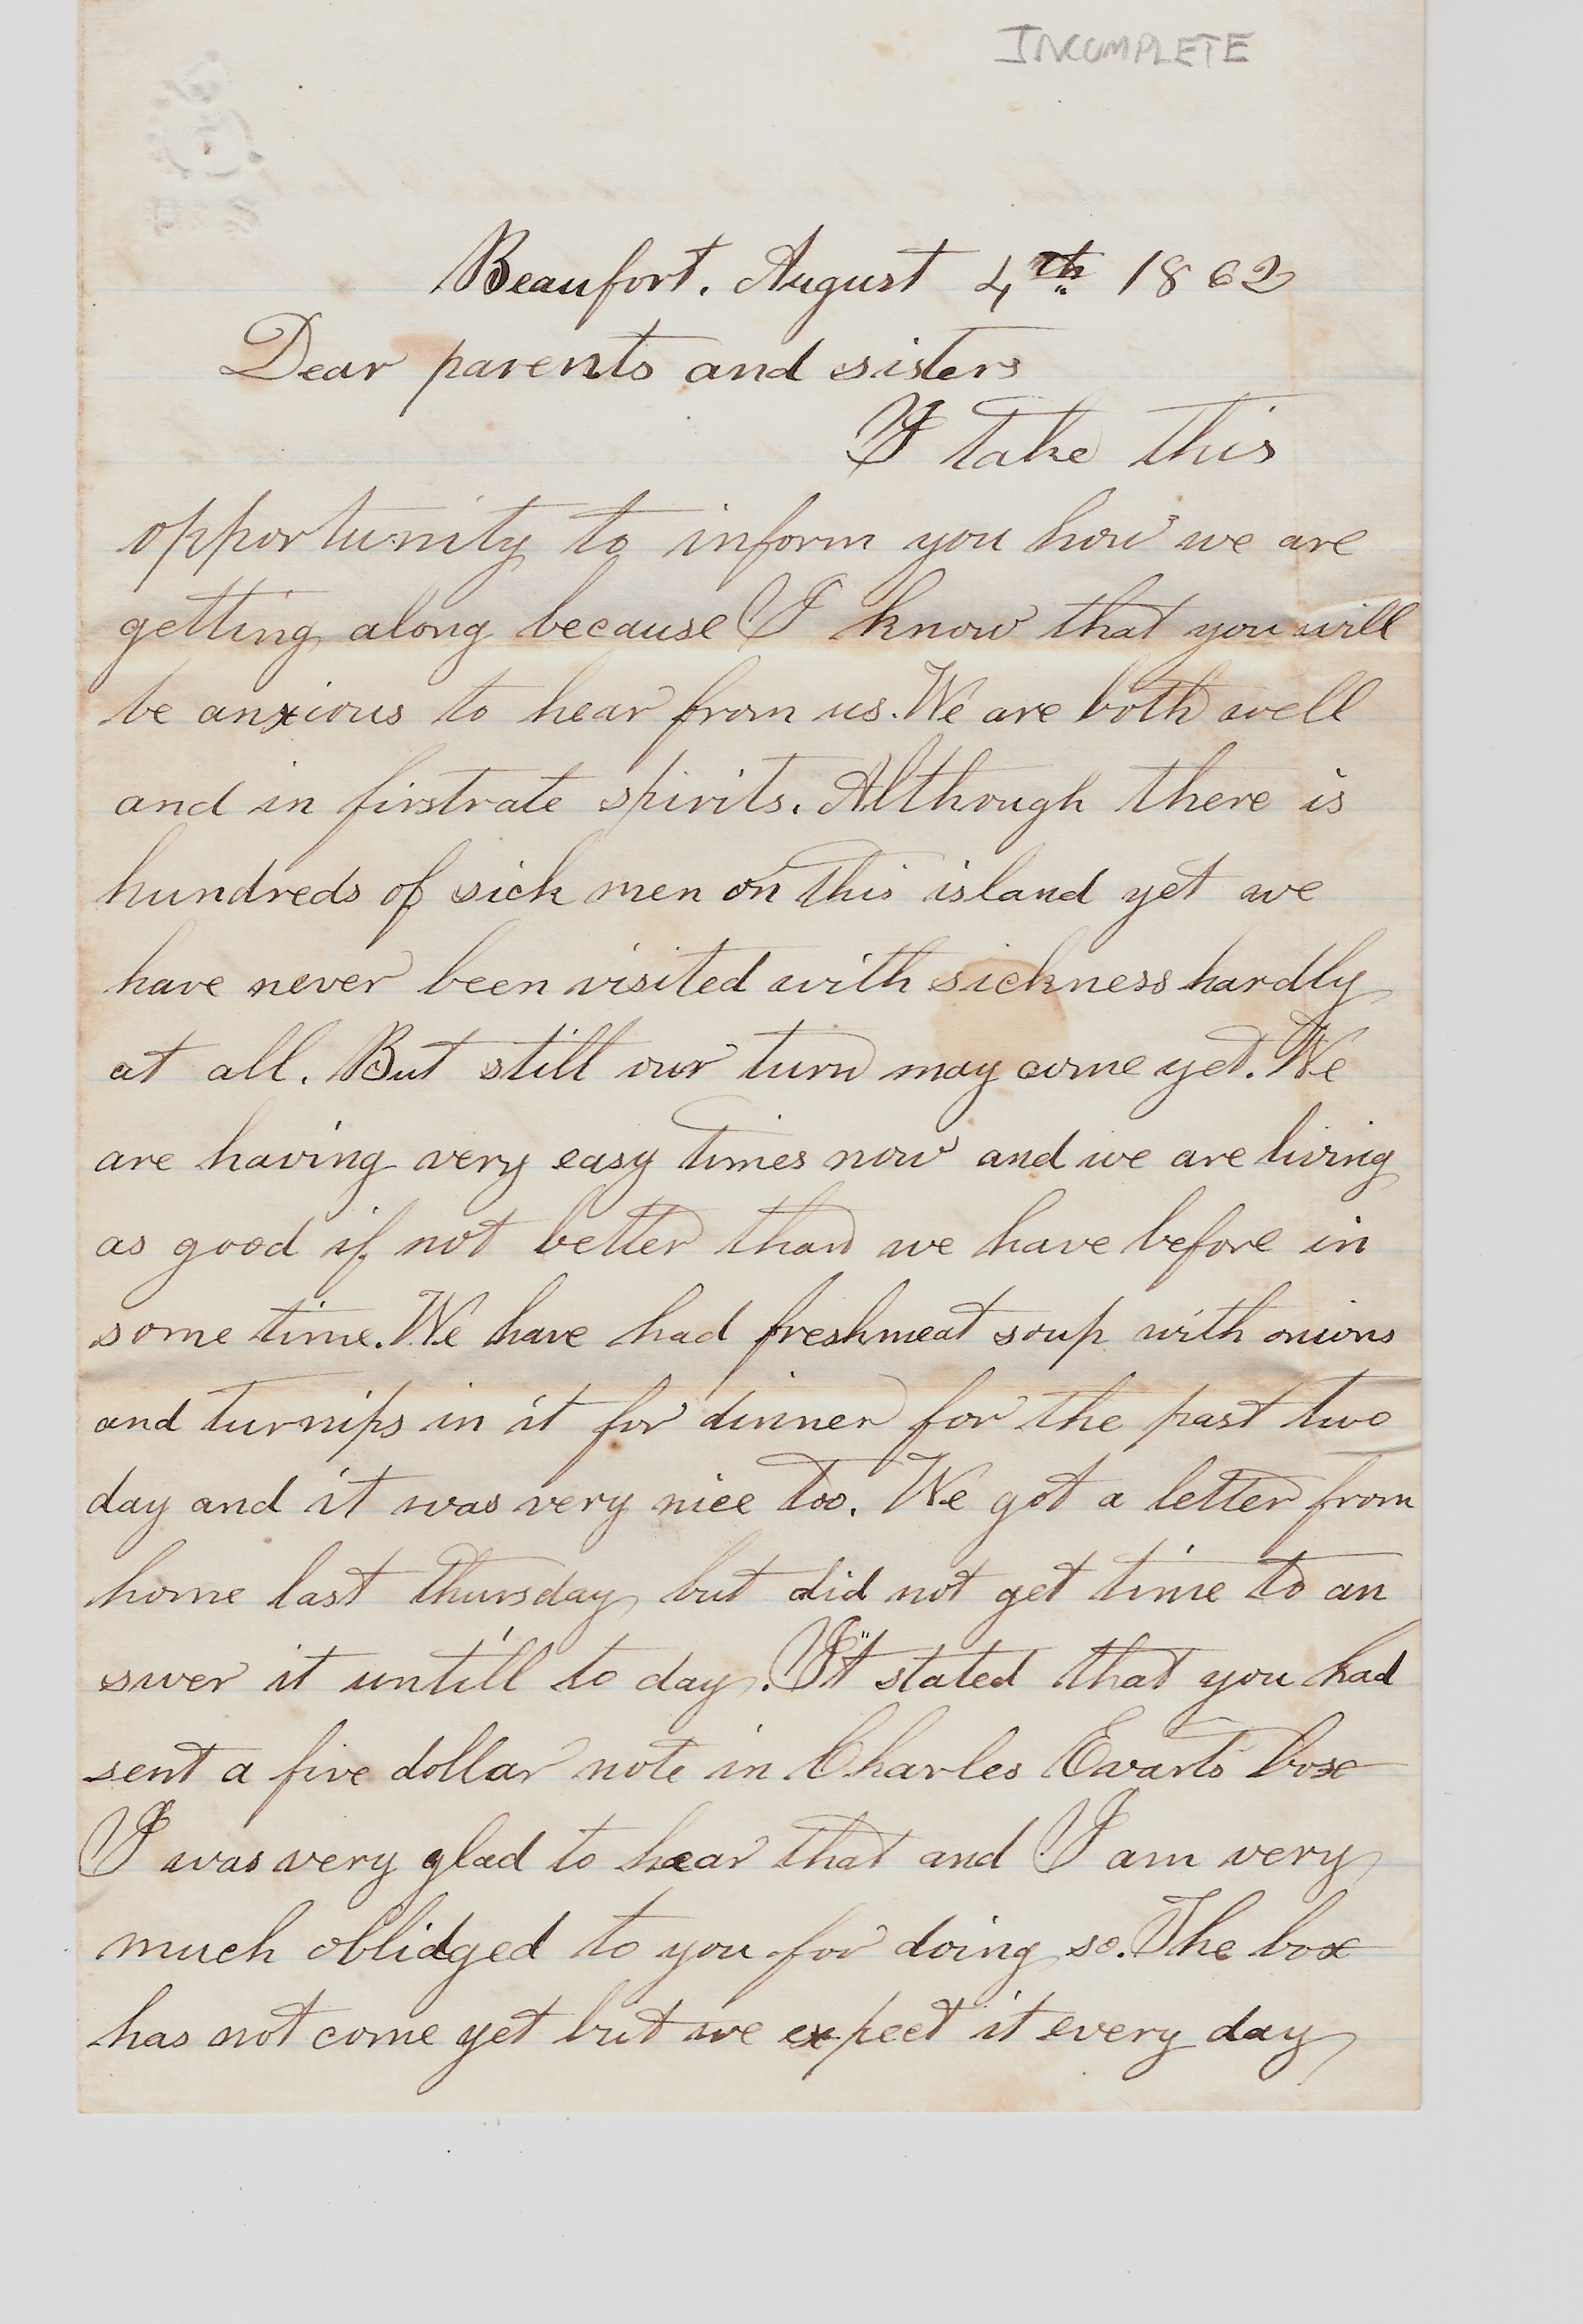 INCOMPLETE
Beaufort. August 4th 1862
Dear parents and sisters
I take this
opportunity to inform you how we are
getting along because I know that you will
be anxious to hear from us. We are both well
and in firstrate spirits. Although there is
hundreds of sick men on this island yet we
have never been visited with sickness hardly
at all. But still our turn may come yet. We
are having very easy times now and we are living
as good if not better than we have before in
some time. We have had freshmeat soup with onions
and turnips in it for dinner for the past two
day and it was very nice too. We got a letter from
home last thursday but did not get time to an
swer it untill to day. It stated that you had
sent a five dollar note in Charles Evarts box
I was very glad to hear that and I am very
much oblidged to you for doing so. The box
has not come yet but we expect it every day